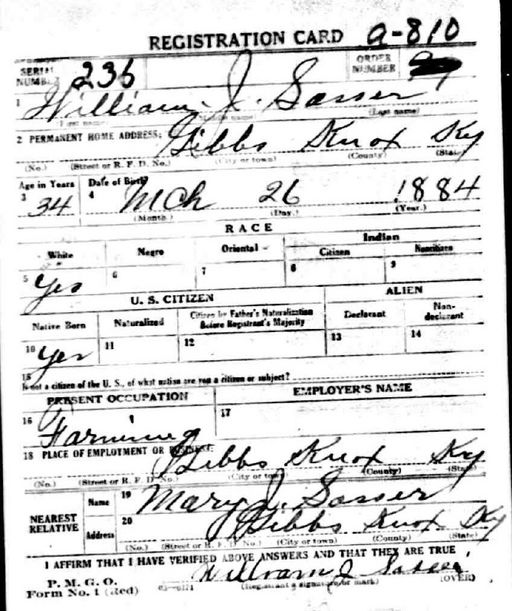 REGISTRATION CARD a-810
SERIAL NUMBER 236 ORDER NUMBER
1 William J. Sasser
(First name) (Middle name) (Last name)
2 PERMANENT HOME ADDRESS: Gibbs Knox Ky
(No.) (Street or R. F. D. No.) (City or town) (County) (State)
Age in Years Date of Birth
3 34 4 Mch 26 1884
(Month.) (Day.) (Year.)
RACE
White Negro Oriental Indian
Citizen Noncitizen
5 Yes 6 7 8 9
U. S. CITIZEN ALIEN
Native Born Naturalized Citizen by Father's Naturalization Before Registrant's Majority Declarant Non-declarant
10 Yes 11 12 13 14
15
If not a citizen of the U. S., of what nation are you a citizen or subject?
PRESENT OCCUPATION EMPLOYER'S NAME
16 Farming 17
18 PLACE OF EMPLOYMENT OR BUSINESS: Gibbs Knox Ky
(No.) (Street or R. F. D. No.) (City or town) (County) (State)
NEAREST RELATIVE Name 19 Mary J. Sasser
Address 20 Gibbs Knox Ky
(No.) (Street or R. F. D. No.) (City or town) (County) (State)
I AFFIRM THAT I HAVE VERIFIED ABOVE ANSWERS AND THAT THEY ARE TRUE
P. M. G. O.
Form No. 1 (Red) William J Sasser
(Registrant's signature or mark) (OVER)